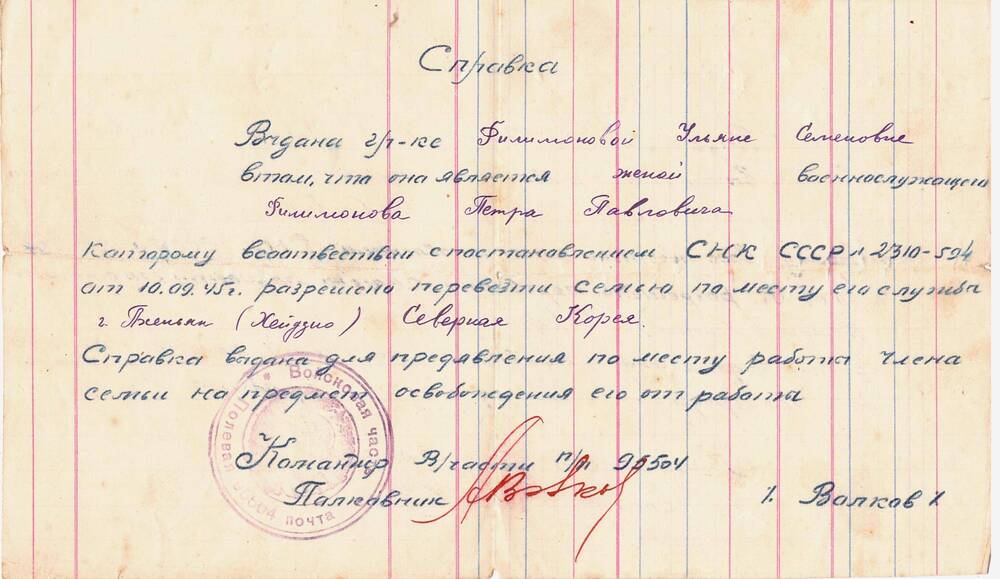 Справка
Выдана гр-ке Филимоновой Ульяне Семеновне
втом, что она является женой военнослужащего
Филимонова Петра Павловича
Которому всоатвествии спостановлением СНК СССР № 2310-594
от 10.09.45г. разрешено перевезти семью поместу его службы
г. Пхеньян (Хейдзио) Северная Корея.
Справка выдана для предявления по месту работы члена
семьи на предмет освобождения его от работы
Командир В/части п/п 95504
Полковник /. Волков /.
Войсковая часть
Полевая почта